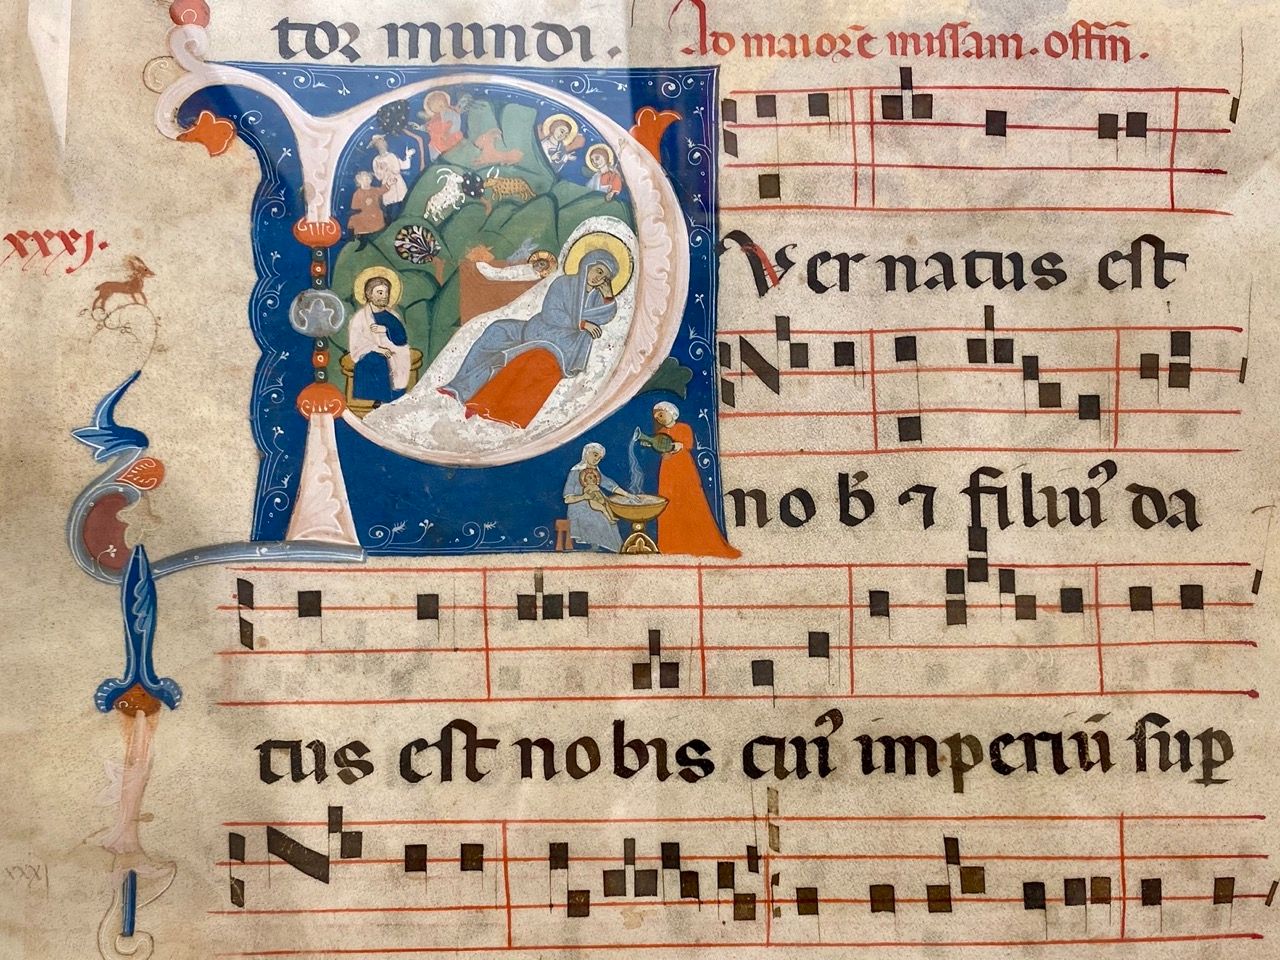 tor mundi. Ad maiorē missam. offm̄.
xxxj.
Puer natus est
nob̄ ⁊ filiu᷑ da
tus est nobis cui᷑ imperiū sup
xxxj